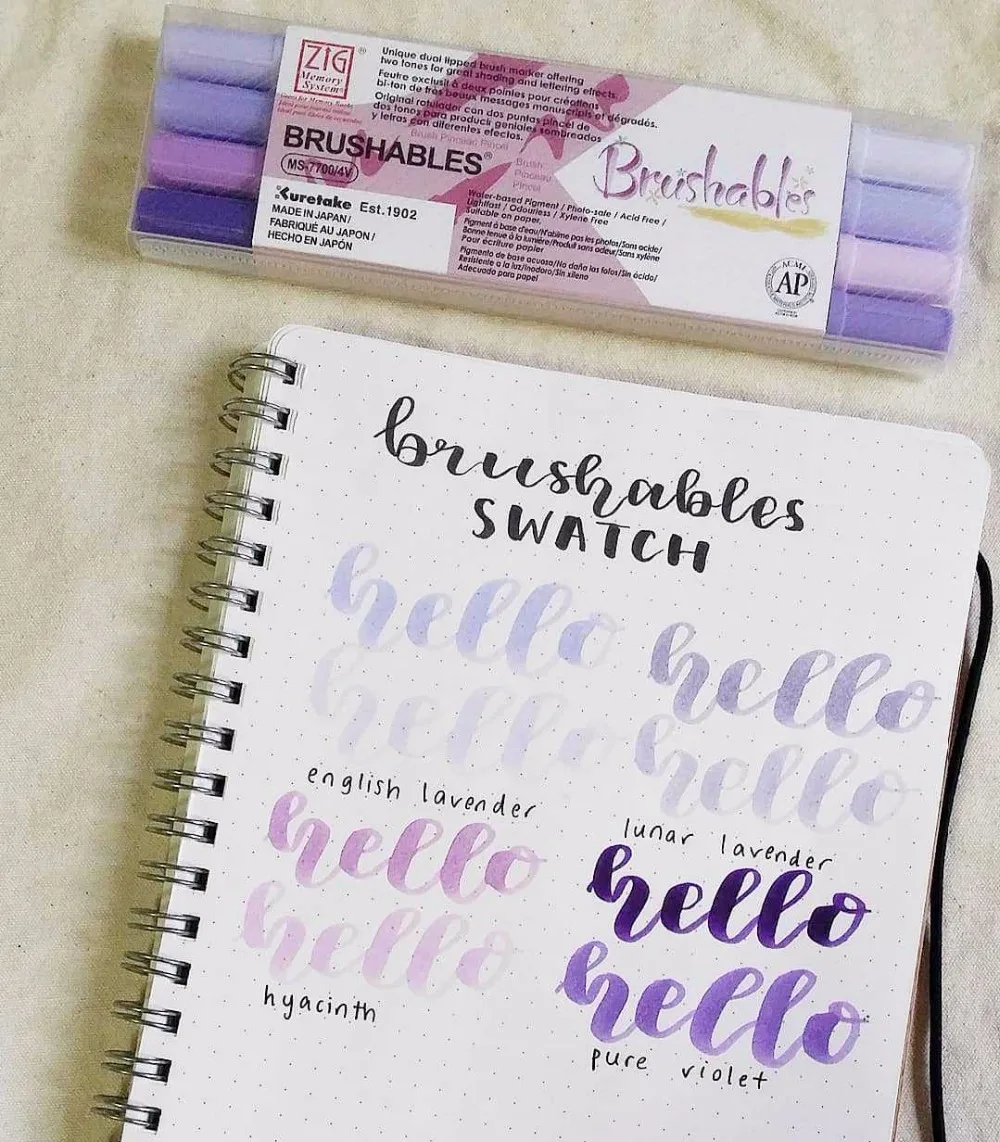 ZIG
Memory
System
Unique dual tipped brush marker offering
two tones for great shading and lettering effects.
Feutre exclusif à deux pointes pour créations
bi-ton de très beaux messages manuscripts et dégradés.
Original rotulador con dos puntas pincel de
dos tonos para producir geniales sombreados
y letras con diferentes efectos.
Brush Pinceau Pincel
BRUSHABLES®
MS-7700/4V
Brush
Pinceau
Pincel
Brushables
Kuretake Est.1902
MADE IN JAPAN/
FABRIQUÉ AU JAPON/
HECHO EN JAPÓN
Water-based Pigment / Photo-safe / Acid Free /
Lightfast / Odourless / Xylene Free
Suitable on paper.
Pigment à base d'eau/N'abîme pas les photos/Sans acide/
Bonne tenue à la lumière/Produit sans odeur/Sans xylène
Pour écriture papier
Pigmento de base acuosa/No daña las fotos/Sin ácido/
Resistente a la luz/Inodoro/Sin xileno
Adecuado para papel
ACMI
AP
brushables
SWATCH
hello
hello
english lavender
hello
hello
lunar lavender
hello
hello
hyacinth
hello
hello
pure violet